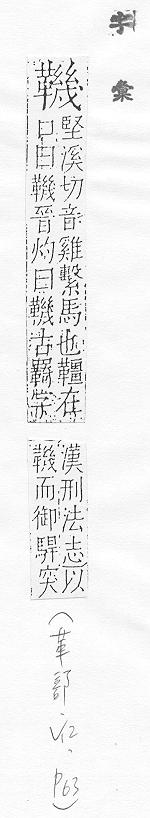 字彙
鞿
堅溪切音雞繫馬也韁在
口曰鞿晉灼曰鞿古羈字
漢刑法志以
鞿而御駻突
(革部、12、P63)